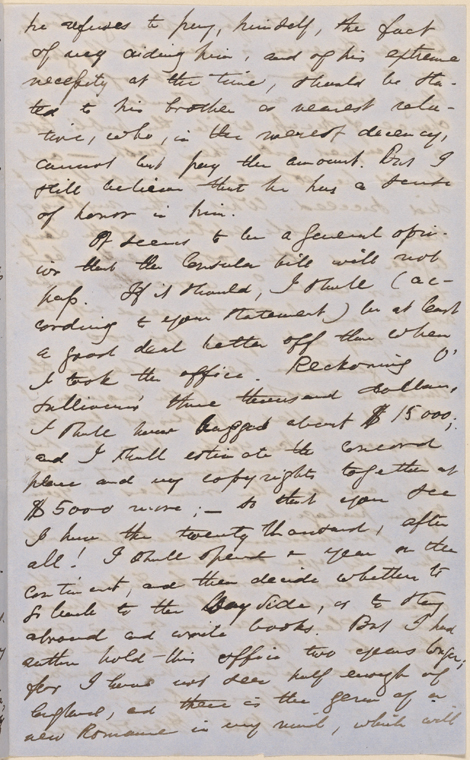 he refuses to pay, himself, the fact
of my aiding him, and of his extreme
necessity at the time, should be sta-
ted to his brother or nearest rela-
tive, who, in the merest decency,
cannot but pay the amount. But I
still believe that he has a sense
of honor in him.
It seems to be a general opin-
ion that the Consular bill will not
pass. If it should, I shall (ac-
cording to your statement) be at least
a good deal better off than when
I took the office. Reckoning O'
Sullivan's three thousand dollars,
I shall have bagged about $15000;
and I shall estimate the Concord
place and my copyrights together at
$5000 more;— so that you see
I have the twenty thousand, after
all! I shall spend a year on the
continent, and then decide whether to
go back to the Wayside, or to stay
abroad and write books. But I had
rather hold this office two years longer;
for I have not seen half enough of
England, and there is the germ of a
new Romance in my mind, which will